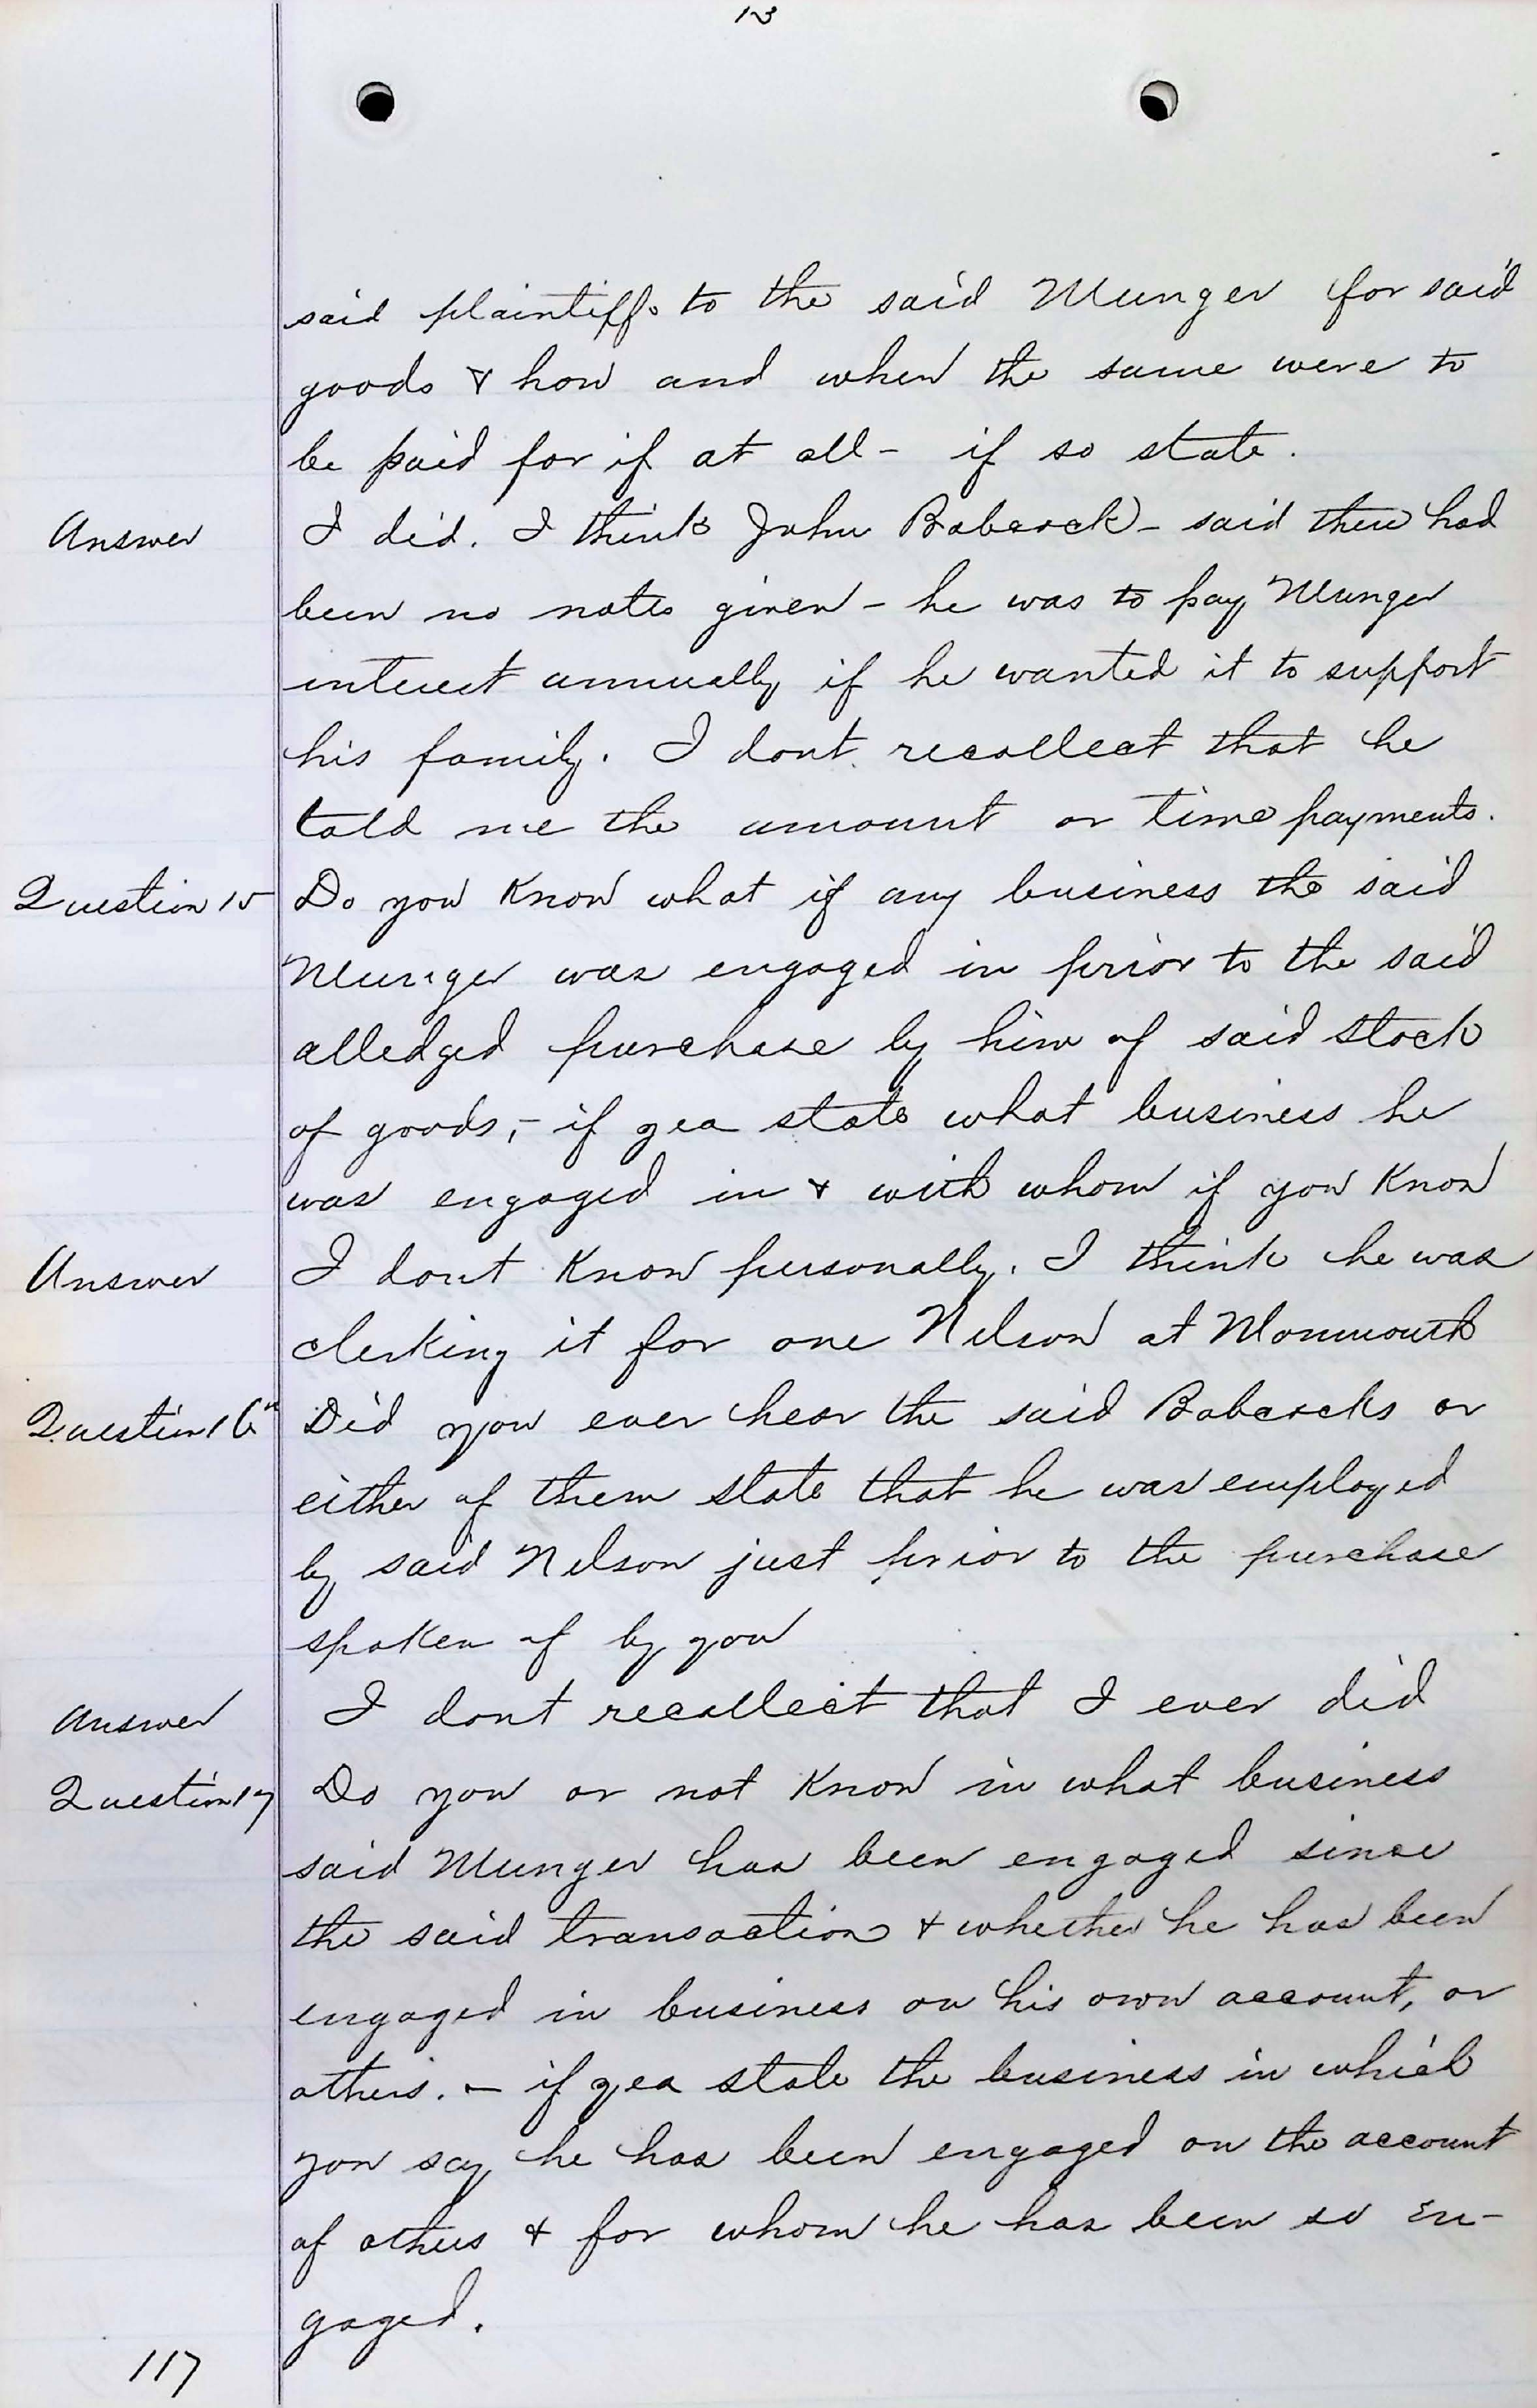 13
said plaintiffs to the said Munger for said
goods & how and when the same were to
be paid for if at all - if so state.
Answer I did. I think John Babcock - said there had
been no notes given - he was to pay Munger
interest annually if he wanted it to support
his family. I dont recollect that he
told me the amount or time payments.
Question 15 Do you Know what if any business the said
Munger was engaged in prior to the said
alledged purchase by him of said stock
of goods, - if yea state what business he
was engaged in & with whom if you Know
Answer I dont Know personally. I think he was
clerking it for one Nelson at Monmouth
Question 16" Did you ever hear the said Babcocks or
either of them state that he was employed
by said Nelson just prior to the purchase
spoken of by you
Answer I dont recollect that I ever did
Question 17 Do you or not Know in what business
said Munger has been engaged since
the said transaction & whether he has been
engaged in business on his own account, or
others. - if yea state the business in which
you say he has been engaged on the account
of others & for whom he has been so en-
gaged.
117